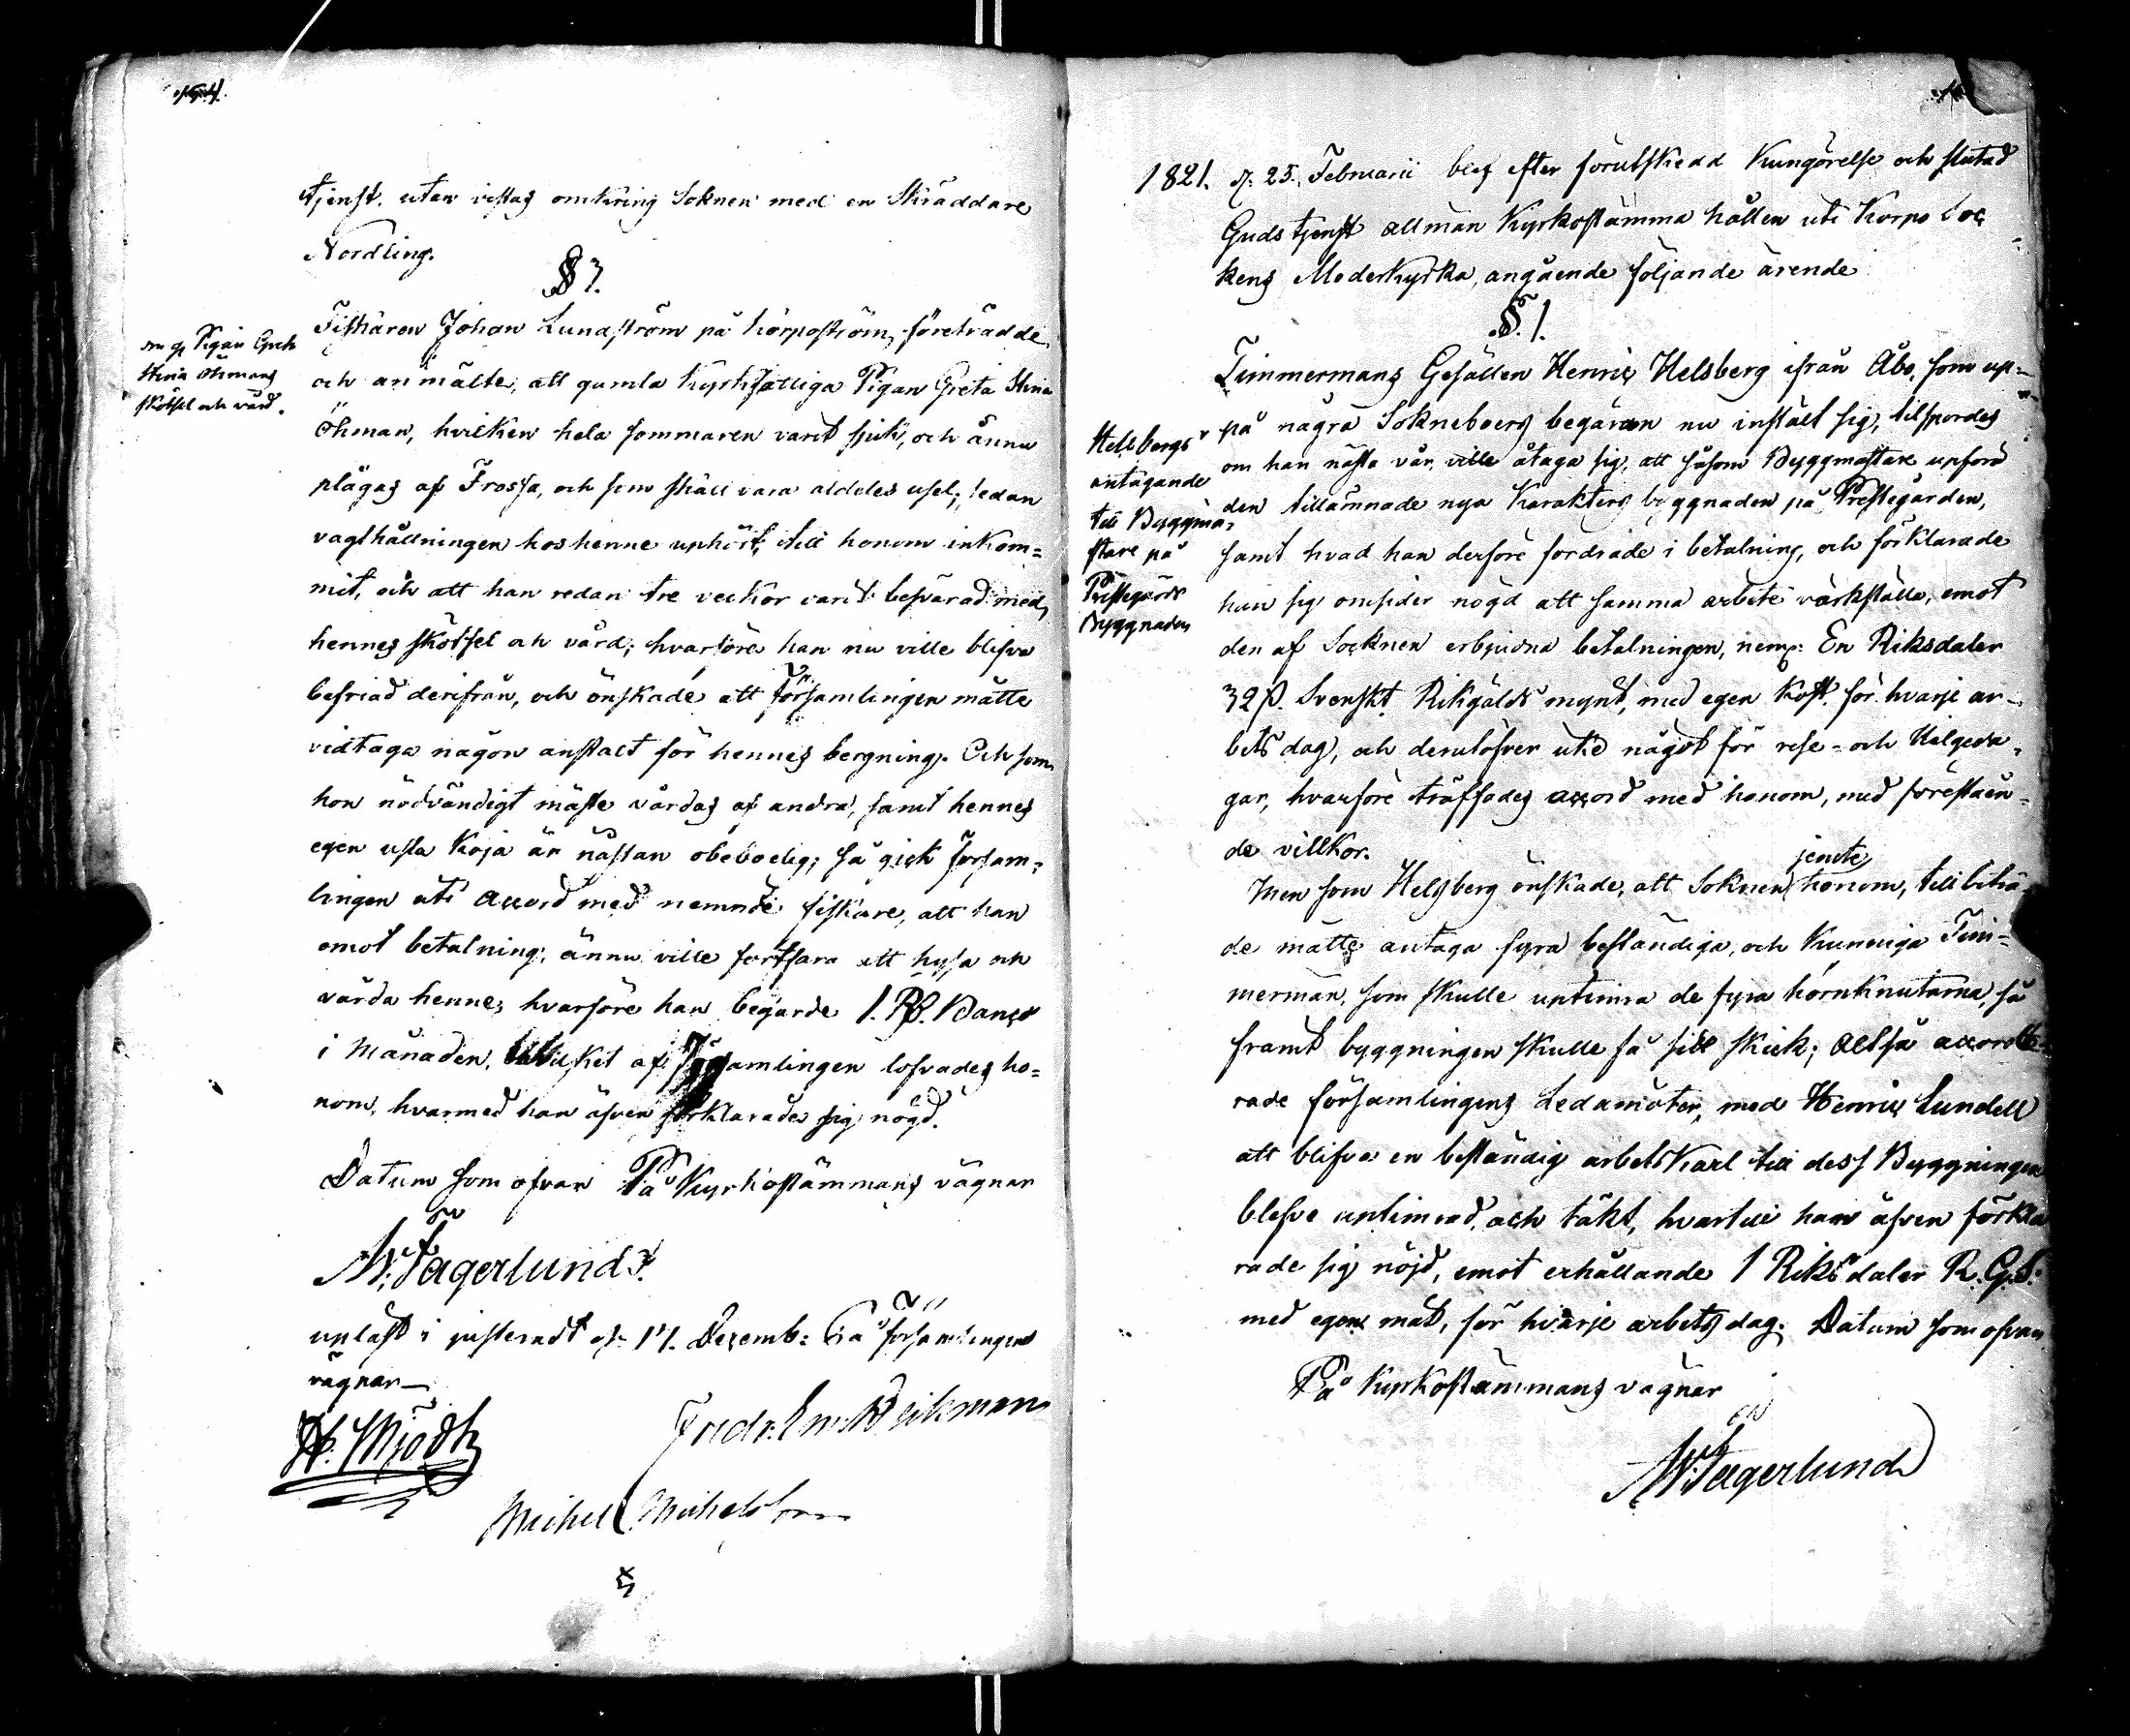 tjenst, utan vistas omkring Soknen med en Skräddare
Nordling.
§ 3.
Fiskaren Johan Lundström på Korpoström, företrädde,
och anmälte, att gamla Kyrkfattiga Pigan Greta Stina
Öhman, hvilken hela sommaren varit sjuk, och ännu
plågas af Frossa, och som skall vara aldeles usel; sedan
vagthållningen hos henne uphört, till honom inkom=
mit, och att han redan tre veckor varit besvärad med
hennes skötsel och vård; hvarföre han nu ville blifva
befriad derifrån, och önskade att Församlingen måtte
vidtaga någon anstalt för hennes bergning. Och som
hon nödvändigt måste vårdas af andra, samt hennes
egen usla Koja är nästan obeboelig; så gick Försam=
lingen uti accord med nemnde fiskare, att han
emot betalning, ännu ville fortfara att hysa och
vårda henne; hvarföre han begärde 1. Rb. Banco
i Månaden. hvilket af Församlingen lofvades ho=
nom, hvarmed han äfven förklarade sig nögd.
Datum som ofvan På Kyrkostämmans vägnar
A. W. Fagerlund
upläst i justeradt d. 17. Decemb: På Församlingens
vägnar
H. Mjödh
Fredr. Em. Wikman
Michel Michelsson
Pigan Greta
Stina Öhmans
skötsel och vård.
1821. d. 25. Februarii blef efter förutskedd Kungörelse och slutad
Gudstjenst allmän Kyrkostämma hållen uti Korpo Soc
kens Moderkyrka, angående följande ärende
§. 1.
Timmermans Gesällen Henric Helsberg ifrån Åbo, som up=
på några Sokneboers begäran nu instält sig, tilspordes
om han nästa vår ville åtaga sig, att såsom Byggmästare upföra
den tillämnade nya Karakters byggnaden på Prestegården,
samt hvad han derföre fordrade i betalning, och förklarade
han sig omsider nögd att samma arbete värkställa, emot
den af Socknen erbjudna betalningen, neml: En Riksdaler
32 ß. Svenskt Rikgälds mynt, med egen kost, för hvarje ar=
bets dag, och derutöfver icke något för rese= och Helgeda=
gar, hvarföre träffades accord med honom, med föreståen=
de villkor.
Men som Helsberg önskade, att Soknen jemte honom, till biträ
de måtte antaga fyra beständiga, och kunniga Tim=
merman, som skulle uptimra de fyra hörnknutarna, så
framt byggningen skulle få sitt skick; altså accorde
rade församlingens Ledamöter, med Henric Lundell
att blifva en beständig arbets Karl till dess Byggningen
blefve uptimrad, och täkt, hvartill han äfven förkla
rade sig nöjd, emot erhållande 1 Riksdaler R. G. S.
med egen mat, för hvarje arbets dag. Datum som ofvan
På Kyrkostämmans vägnar
A. W. Fagerlund
Helsbergs
antagande
till Byggmä=
stare på
Prestegårds
Byggnaden